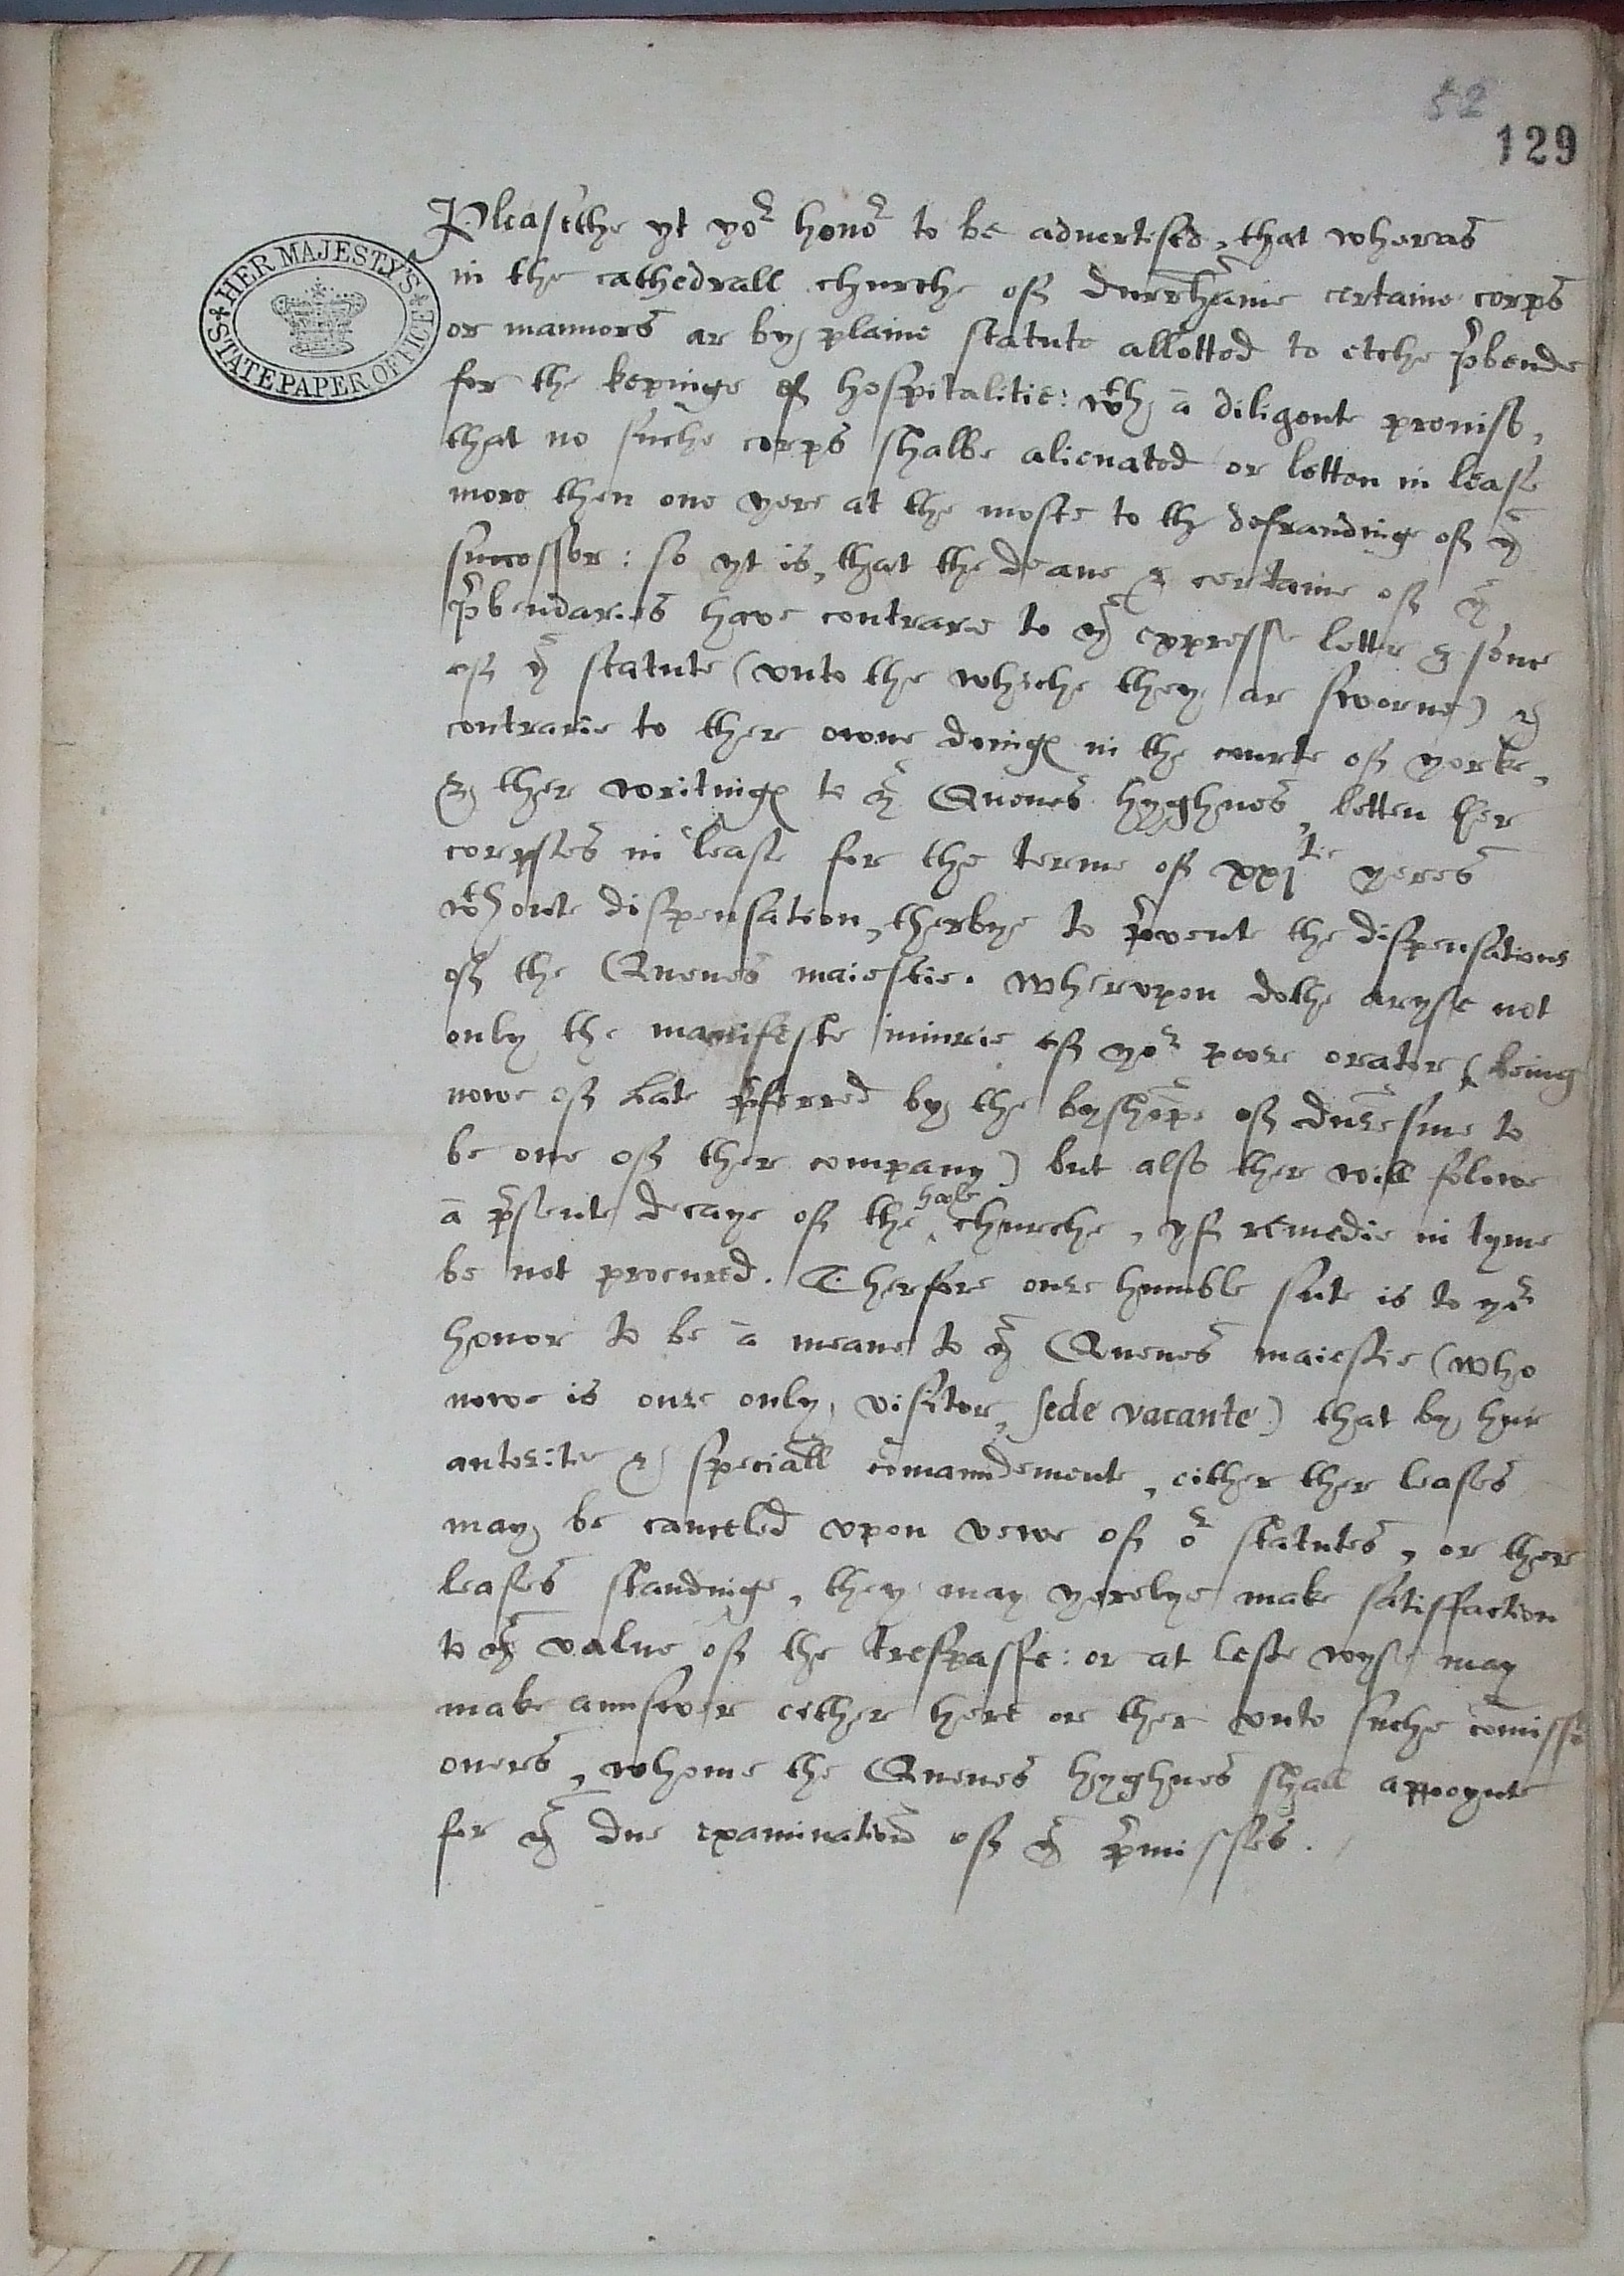 52
129
HER MAJESTY'S
STATE PAPER OFFICE
Pleasethe yt yor honor to be advertised, that wheras
in the cathedrall churche off Durrhame certaine corps
or mannors ar by plaine statute allotted to etche p̄bende
for the kepinge off hospitalitie: wth a diligente proviso,
that no suche corps shalbe alienated or letten in lease
more then one yere at the moste to the defraudinge off ye
successor: so yt is, that the deane & certaine off ye
p̄bendaries have contrare to ye expresse letter & sence
off ye statute (unto the whiche they ar sworne) &
contrarie to ther owne doings in the courte off yorke,
& ther writings to ye Quenes hyghnes, letten ther
corpses in lease for the terme off xxjtie yeres
wthoute dispensation, therbye to p̄vente the dispensations
off the Quenes maiestie. Wherupon dothe aryse not
only the manifeste iniurie off yor poore orator (being
nowe off late p̄ferred by the byshope off Duresme to
be one off ther company) but also ther will folowe
a p̄sente decaye off the hole churche, yff remedie in tyme
be not procured. Therfore oure humble sute is to yor
honor to be a meane to ye Quenes maiestie (who
nowe is oure only visitor, sede vacante) that by hur
autorite & speciall com̄aundemente, either ther leases
may be canceled upon vewe off or statutes, or ther
leases standinge, they may yerelye make satisffaction
to ye value off the trespasse: or at leste wyse may
make aunswer ether here or ther unto suche com̄issi
oners, whome the Quenes hyghnes shall appoynte
for ye due examination off ye p̄misses.